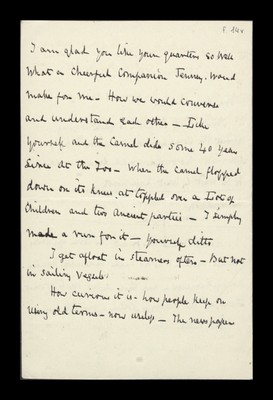 f. 14v
I am glad you like your quarters so well
What a Cheerful Companion Jenney. Would
make for me – How we would converse
and understand each other – Like
Yourself and the Camel did some 40 year
Since at the Zoo – When the Camel flopped
down on its knee at toppled over a lot of
Children and two Ancient parties – I simply
made a run for it – Yourself ditto
I get afloat in steamers often – But not
in sailing vessels
How curious it is – how people keep on
using old terms – now useless – The newspaper